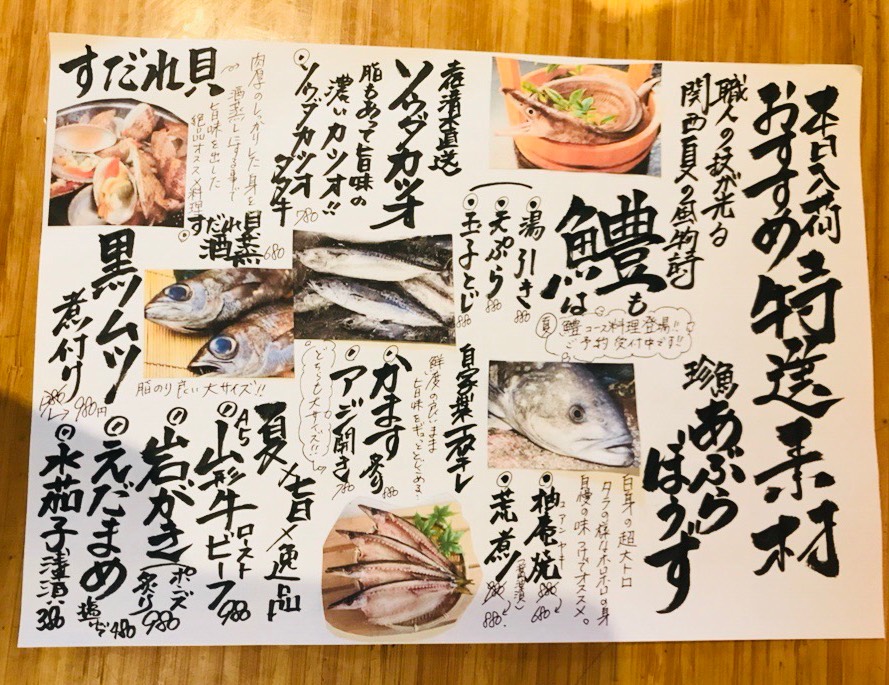 本日入荷
おすすめ特選素材
職人の技が光る
関西夏の風物詩
鱧
はも
湯引き 880
天ぷら 880
玉子とじ 880
夏 鱧コース料理登場!!
ご予約受付中です!!
珍魚
あぶらぼうず
白身の超大トロ
タラの様なホロホロの身
自慢の味付けでオススメ。
柚庵焼
ユアンヤキ
680
荒煮
880
土佐清水直送
ソウダカツオ
脂もあって旨味の
濃いカツオ!!
ソウダカツオタタキ
780
自家製一夜干し
鮮度の良いまま
旨味をギュッととじこめました
かます 炙り
アジ開き 780
どちらも大サイズ!!
すだれ貝
肉厚のしっかりした身を
酒蒸しにする事で
旨味を出した
絶品オススメ料理
すだれ貝
酒蒸
680
黒ムツ
煮付け
980円
脂のり良い大サイズ!!
夏×旨×逸品
A5山形牛ローストビーフ 980
岩がき(ポン酢 炙り) 980
えだまめ 塩ゆで 480
水茄子 浅漬け 380